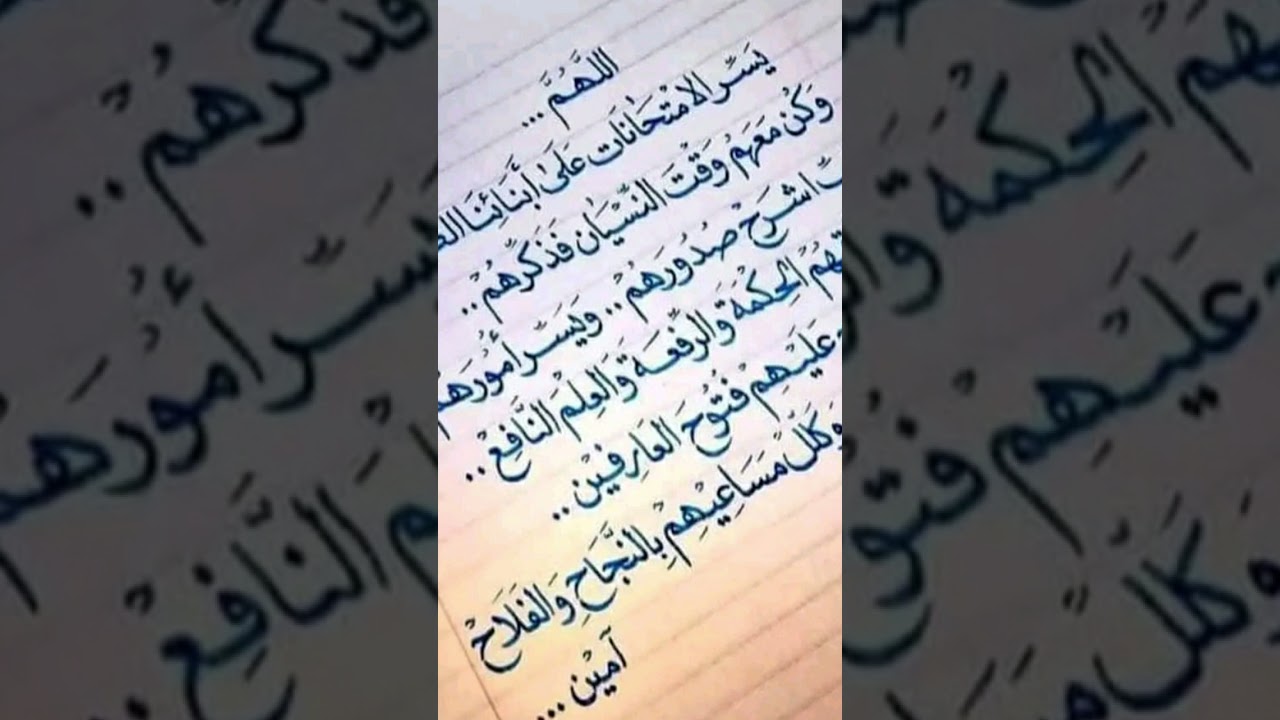 اللَّهُمَّ ...
يَسِّر الامْتحَانَات عَلَىٰ أَبنَائِنَا
وَكُن مَعَهُم وَقْتَ النِّسْيَان فَذَكِّرهُمْ ..
اشرَحْ صُدُورَهُمْ .. وَيَسِّر أُمُورَهُم
الحِكمَة وَالرِّفعَة وَالعِلمَ النَّافِعْ ..
عَلَيْهِمْ فتُوحَ العَارِفِيْن ..
وَكَلِّل مَسَاعِيْهِمْ بِالنَّجَاحِ وَالفَلَاحْ
آمِيْن ...